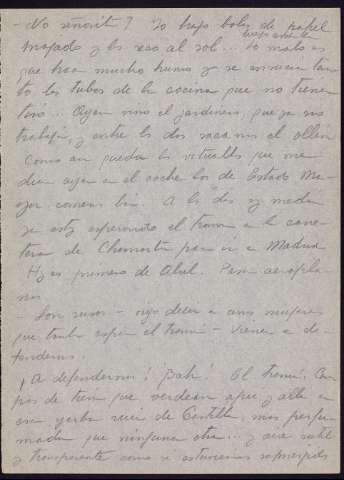 - No señorita! Yo hago bolas de papel
mojado y las seco al sol... luego arde. Lo malo es
que hace mucho humo y se ensucian tan
to los tubos de la cocina que no tiene
tiro... Ayer vino el jardinero, que ya no
trabaja, y entre los dos sacamos el ollín
Como aún quedan las vituallas que me
dieron ayer en el coche los de Estado Ma-
yor comemos bien. A las dos y media
ya estoy esperando el tranvía a la carre-
tera de Chamartín para ir a Madrid.
Hoy es primero de Abril. Pasan aeropla-
nos
- Son rusos - oigo decir a unas mujeres
que también esperan el tranvía - vienen a de-
fendernos.
¡A defendernos! ¡Bah! El tranvía. Cam-
pos de tierra que verdean aquí y allá con
esa yerba ruin de Castilla, más perfu-
mada que ninguna otra... y aire sutil
y transparente como si estuviéramos sumergidos